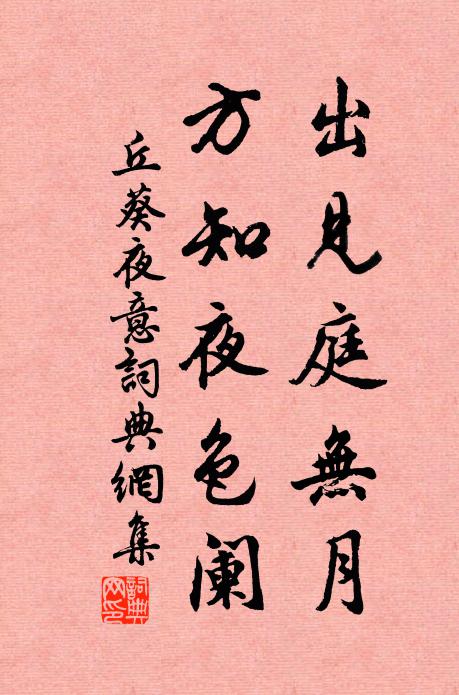 出見庭無月
方知夜色阑
丘葵夜意詞典網集
詞典網印